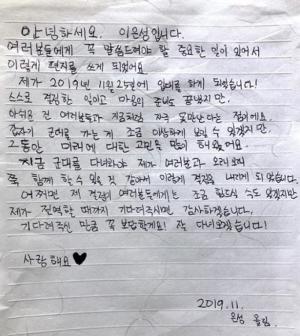 안녕하세요. 이은성입니다.
여러분들에게 꼭 말씀드려야 할 중요한 일이 있어서
이렇게 편지를 쓰게 되었어요
제가 2019년 11월 25일에 입대를 하게 되었습니다!
스스로 결정한 일이고 마음의 준비도 끝냈지만,
아쉬운 건 여러분들과 지금처럼 자주 못만난다는 점이에요.
갑자기 군대를 가는 게 조금 이상하게 보일 수 있겠지만,
그동안 미래에 대한 고민을 많이 해왔어요.
지금 군대를 다녀와야 제가 여러분과 오래오래
쭉 함께 할 수 있을 것 같아서 이렇게 결정을 내리게 되었습니다.
어쩌면 제 결정이 여러분들에게는 조금 힘드실 수도 있겠지만
제가 전역할 때까지 기다려주시면 감사하겠습니다.
기다려주신 만큼 꼭 보답할게요! 잘 다녀오겠습니다!
사랑해요♥
2019.11.
은성 올림.